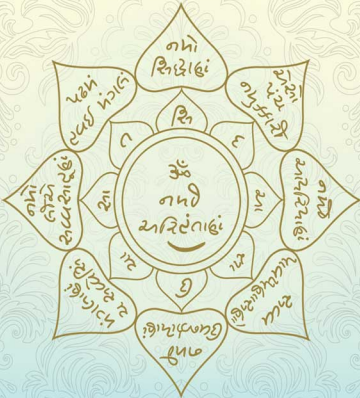 ૐ
નમો
અરિહંતાણં
સિ
આ
ઉ
સા
નમો
સિદ્ધાણં
એસો
પંચ
નમુક્કારો
નમો
આયરિયાણં
સવ્વ
પાવપ્પણાસણો
નમો
ઉવજ્ઝાયાણં
મંગલાણં
ચ સવ્વેસિં
નમો
લોએ
સવ્વસાહૂણં
પઢમં
હવઇ મંગલં